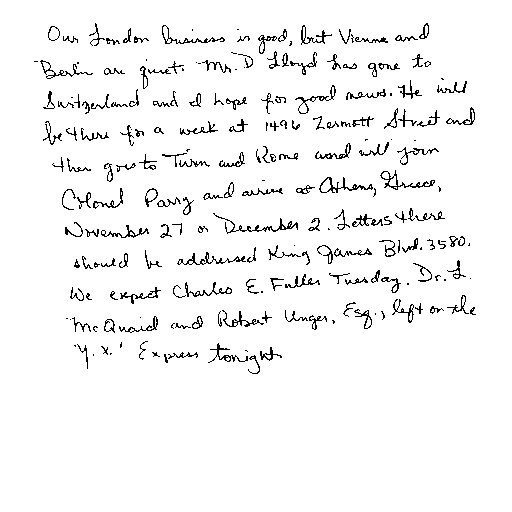 Our London business is good, but Vienna and
Berlin are quiet. Mr. D Lloyd has gone to
Switzerland and I hope for good news. He will
be there for a week at 1496 Zermott Street and
then goes to Turin and Rome and will join
Colonel Parry and arrive at Athens, Greece,
November 27 or December 2. Letters there
should be addressed King James Blvd. 3580.
We expect Charles E. Fuller Tuesday. Dr. L.
McQuaid and Robert Unger, Esq., left on the
'Y. X.' Express tonight